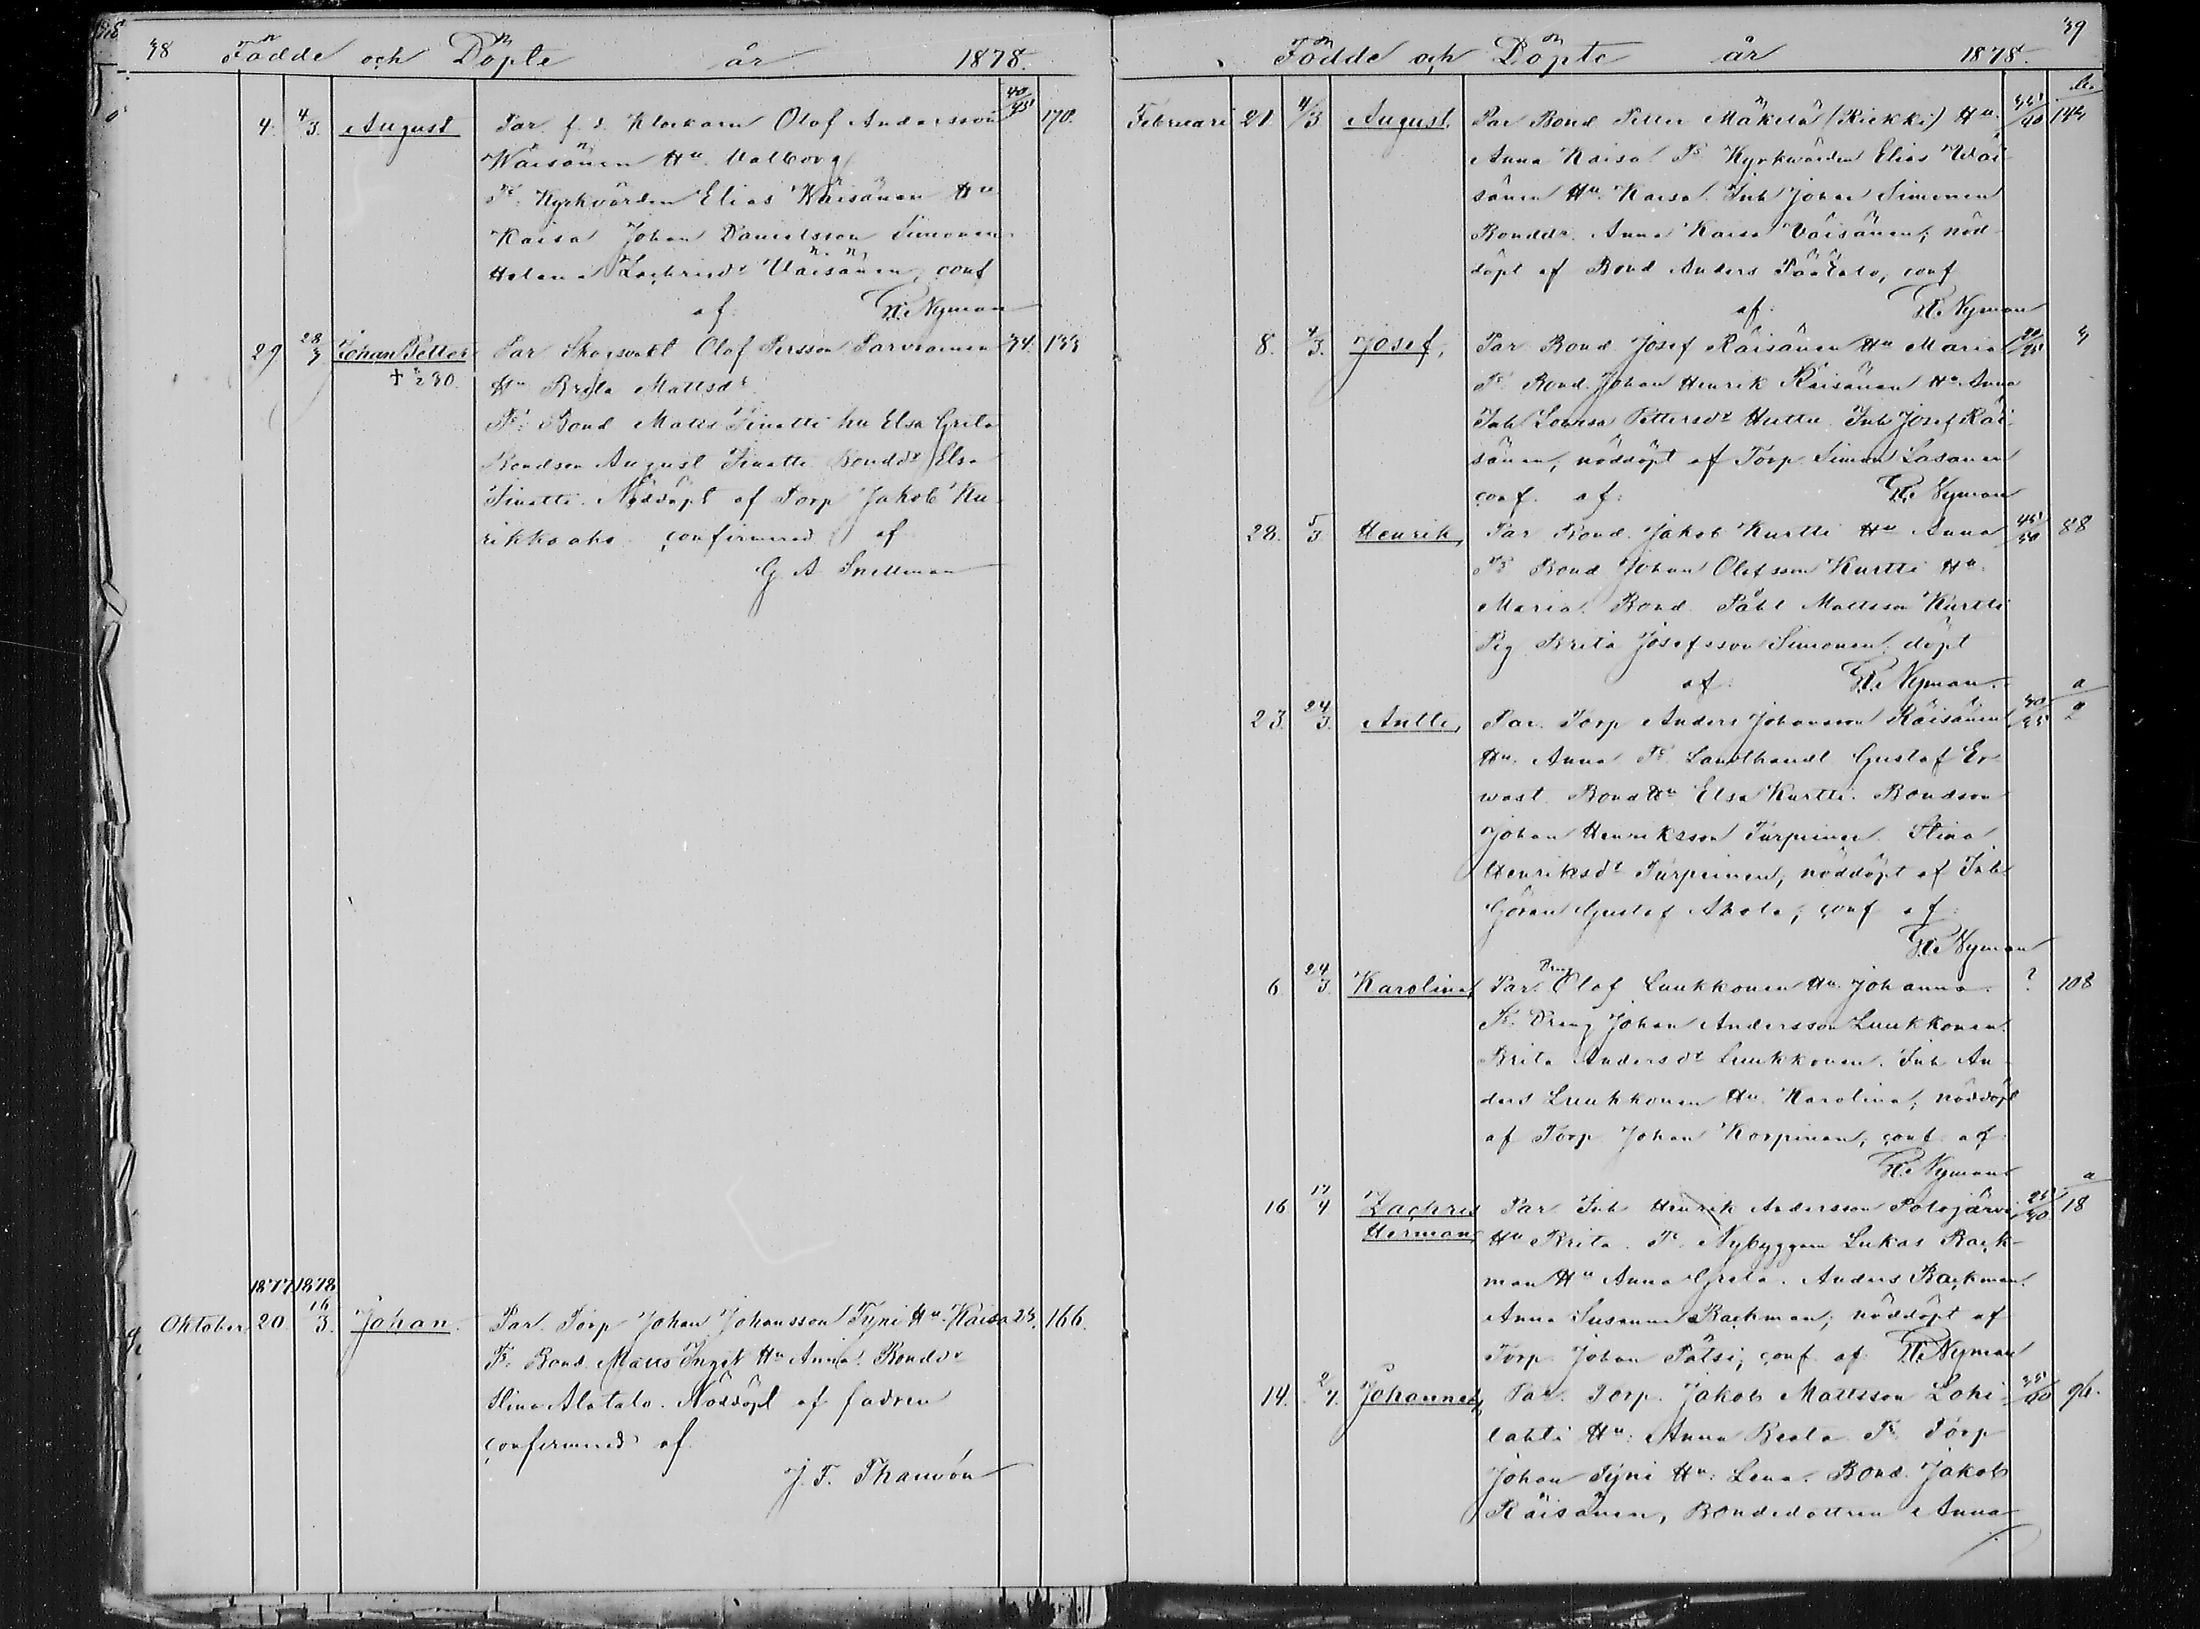 38 Födde och Döpte år 1878.
4. 4/3. August Par. f. d. Klockarn Olof Andersson 40/45 170.
Wäisänen Hu. Walborg
Fr. Kyrkvärden Elias Wäisänen Hu
Kaisa Johan Danielsson Simonen
Helena Zachrisdr Väisänen, conf
af: H. Nyman
29 28/3 Johan Petter Par Olof Persson Parviainen 34. 133
Hu Brita Mattsdr
Fr. Bond Matts Tinatti hu Elsa Greta
Bondson August Tinatti Bonddr Elsa
Tinatti. Nöddöpt af Torp Jakob Ku-
rikkaaho confirmerad af
G A Snellman
1877 1878
Oktober 20. 16/3. Johan. Par. Torp Johan Johansson Tyni Hu. Kaisa 24. 166.
Fr. Bond. Matts Inget Hu Anna. Bonddr
Stina Alatalo. Nöddöpt af fadren
confirmerad af
J. F. Thauvón
39
Födde och Döpte år 1878.
Februari 21 4/3 August, Par Bond Petter Mäkelä (Riekki) Hu. 35/40 144
Anna Kaisa Fr. Kyrkvärden Elias Wäi-
sänen Hu. Kaisa. Inh Johan Simonen
Bonddr. Anna Kaisa Väisänen; nöd-
döpt af Bond Anders Päätalo, conf
af: H. Nyman
8. 4/3. Josef, Par Bond Josef Räisänen Hu Maria
Fr. Bond. Johan Henrik Räisänen Hu. Anna
Inh Lovisa Pettersdr Huttu. Inh Josef Räi-
sänen, nöddöpt af Torp. Simon Lasanen
conf. af: H. Nyman
28. 5/3 Henrik, Par Bond. Jakob Kurtti Hu Anna 88
Fr. Bond Johan Olofsson Kurtti Hu.
Maria. Bond. Påhl Mattsson Kurtti
Pig Brita Josefsson Simonen. döpt
af: H. Nyman.
23. 24/3. Antti, Par. Torp Anders Johansson Räisänen a 2
Hu. Anna Fr. Landthandl Gustaf Er-
wast. Bond Hu Elsa Kurtti. Bondson
Johan Henriksson Turpeinen. Stina
Henriksdr Turpeinen, nöddöpt af Inh
Göran Gustaf Ahola, conf af:
H. Nyman
6. 24/3. Karolina, Par. Dreng Olof Luukkonen Hu. Johanna. ? 108
Fr. Dreng Johan Andersson Luukkonen.
Brita Andersdr Luukkonen. Inh An-
ders Luukkonen Hu. Karolina, nöddöpt
af Torp Johan Korpinen, conf af:
H. Nyman
16 17/4 Zachris Herman, Par Inh Henrik Andersson Polojärvi a 18
Hu Brita. Fr. Nybyggaren Lukas Rack-
man Hu Anna Greta. Anders Rackman.
Anna Susanna Rackman; nöddöpt af
Torp. Johan Pätsi, conf. af: H. Nyman
14. Johannes, Par. Torp. Jakob Mattsson Lohi- 35/40
lahti Hu. Anna Beata. Fr. Torp
Johan Tyni Hu: Lena. Bond. Jakob
Räisänen, Bondedottren Anna